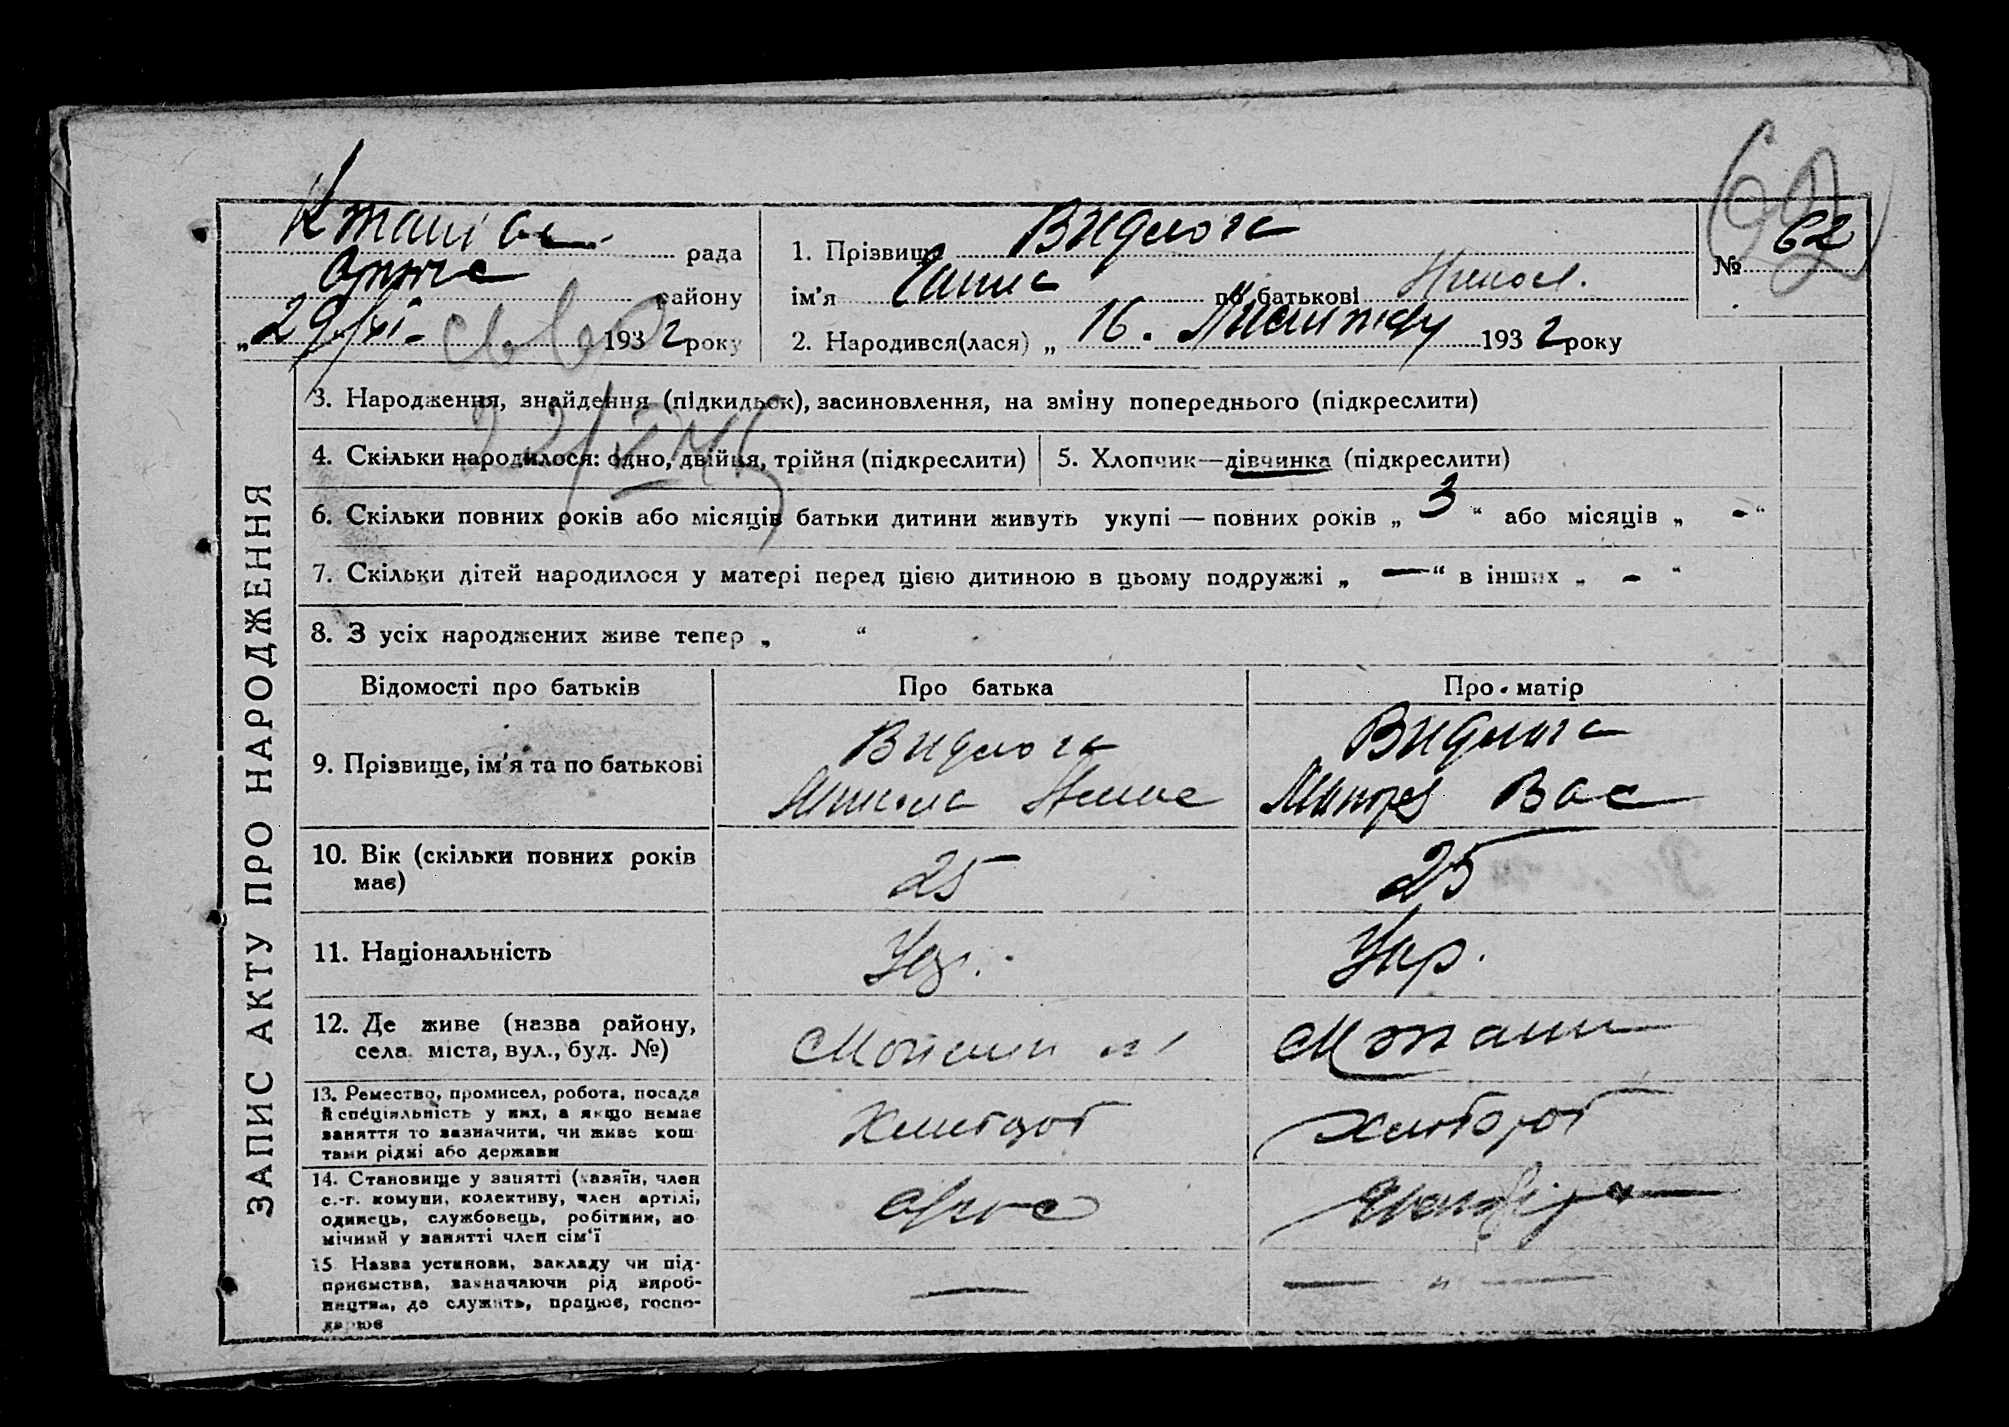 рада
району
29/XI- 1932 року
1. Прізвище Видлога
ім'я Ганна по батькові Микол.
2. Народився(лася) „ 16. Листопаду 1932 року
№ 62
ЗАПИС АКТУ ПРО НАРОДЖЕННЯ
3. Народження, знайдення (підкидьок), засиновлення, на зміну попереднього (підкреслити)
4. Скільки народилося: одно, двійця, трійня (підкреслити)
5. Хлопчик—дівчинка (підкреслити)
6. Скільки повних років або місяців батьки дитини живуть укупі — повних років „ 3 “ або місяців „ - “
7. Скільки дітей народилося у матері перед цією дитиною в цьому подружжі „ — “ в інших „ - “
8. З усіх народжених живе тепер „ “
Відомості про батьків
Про батька
Про матір
9. Прізвище, ім'я та по батькові
Видлога
Микола
Видлога
Вас
10. Вік (скільки повних років
має)
25
25
11. Національність
Укр.
Укр.
12. Де живе (назва району,
села, міста, вул., буд. №)
13. Ремество, промисел, робота, посада
й спеціяльність у них, а якщо немає
заняття то зазначити, чи живе кош
тами рідні або держави
Хлібороб
Хлібороб
14. Становище у занятті (хазяїн, член
с.-г. комуни, колективу, член артілі,
одинець, службовець, робітник, по
мічний у занятті член сім'ї
15 Назва установи, закладу чи під-
приємства, зазначаючи рід вироб-
ництва, де служить, працює, госпо-
дарює
— " —